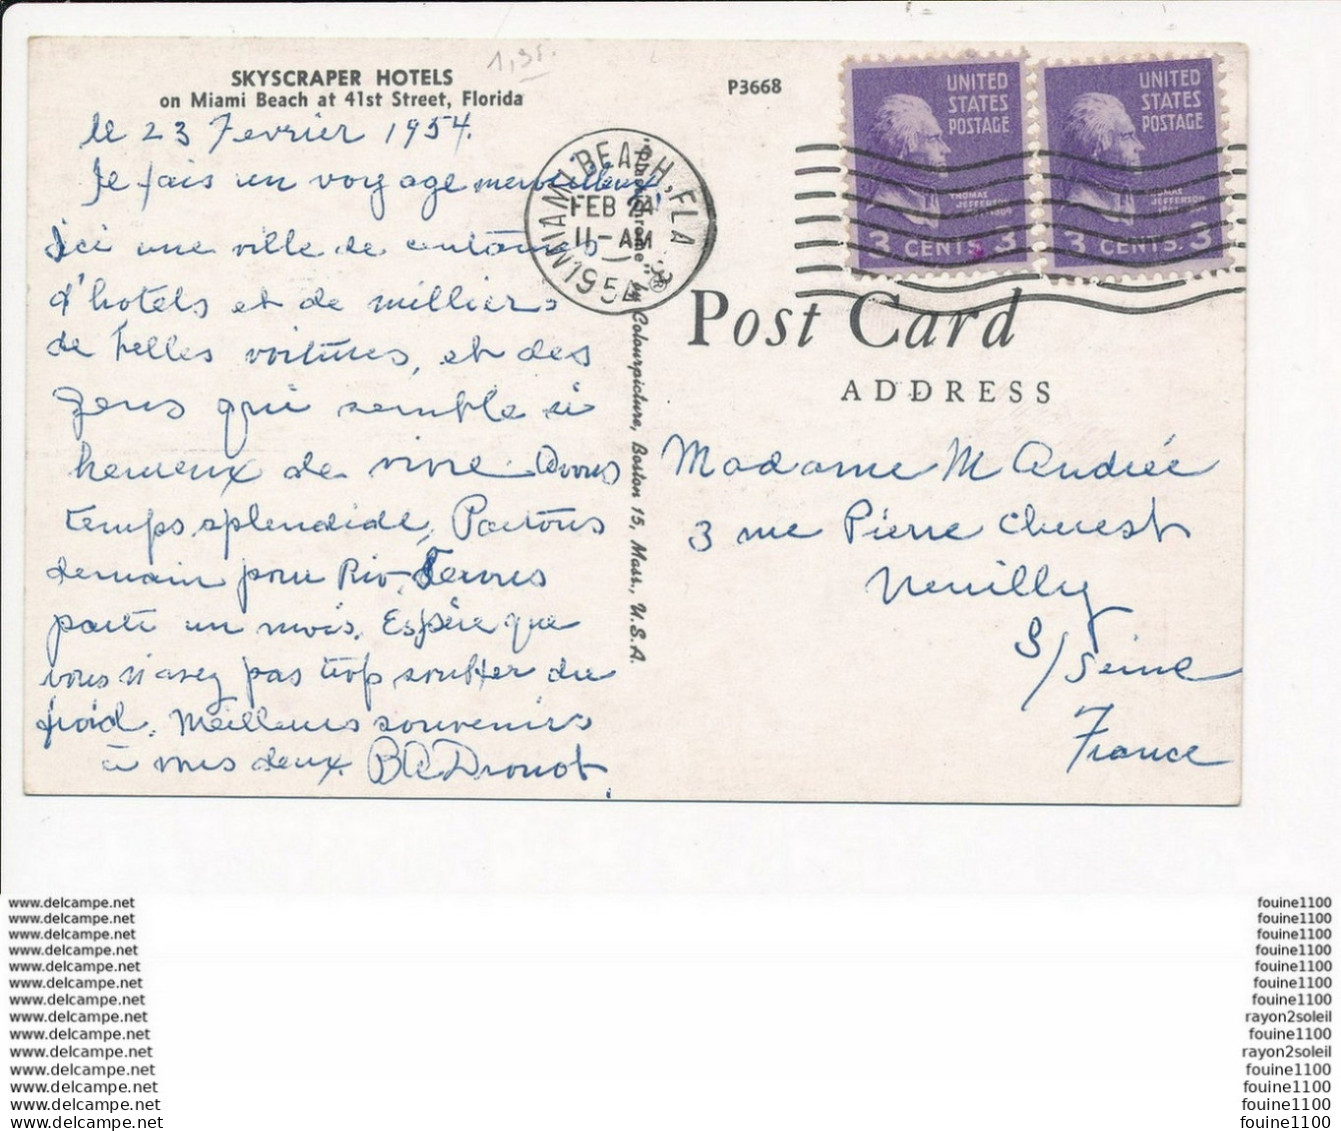 1,35.
SKYSCRAPER HOTELS
on Miami Beach at 41st Street, Florida
P3668
le 23 Fevrier 1954.
Je fais un voyage merveilleux.
Ici une ville de centaines
d'hotels et de milliers
de belles voitures, et des
gens qui semble si
heureux de vivre. Avons
temps splendide, Partons
demain pour Rio,
parti un mois. Espère que
vous n'avez pas trop souffer du
froid. Meilleurs souvenirs
à vous deux. BADrouot
MIAMI BEACH, FLA.
FEB 24
11-AM
1954
"Plastichrome" by Colourpicture, Boston 15, Mass., U.S.A.
UNITED STATES POSTAGE
THOMAS JEFFERSON
3 CENTS 3
UNITED STATES POSTAGE
THOMAS JEFFERSON
3 CENTS. 3
Post Card
ADDRESS
Madame M Andrée
3 rue Pierre Cherest
Neuilly
S/Seine
France
www.delcampe.net fouine1100
www.delcampe.net fouine1100
www.delcampe.net fouine1100
www.delcampe.net fouine1100
www.delcampe.net fouine1100
www.delcampe.net fouine1100
www.delcampe.net fouine1100
www.delcampe.net rayon2soleil
www.delcampe.net fouine1100
www.delcampe.net rayon2soleil
www.delcampe.net fouine1100
www.delcampe.net fouine1100
www.delcampe.net fouine1100
www.delcampe.net fouine1100